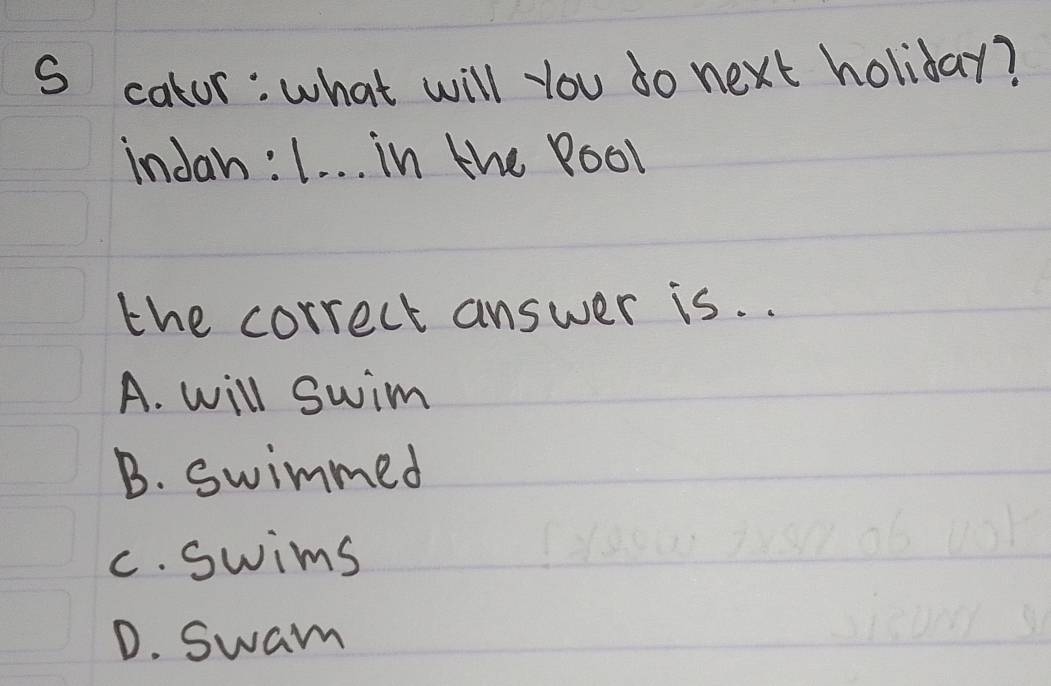 5 catur : what will You do next holiday?
indah : I... in the Pool
the correct answer is..
A. will swim
B. swimmed
C. swims
D. swam